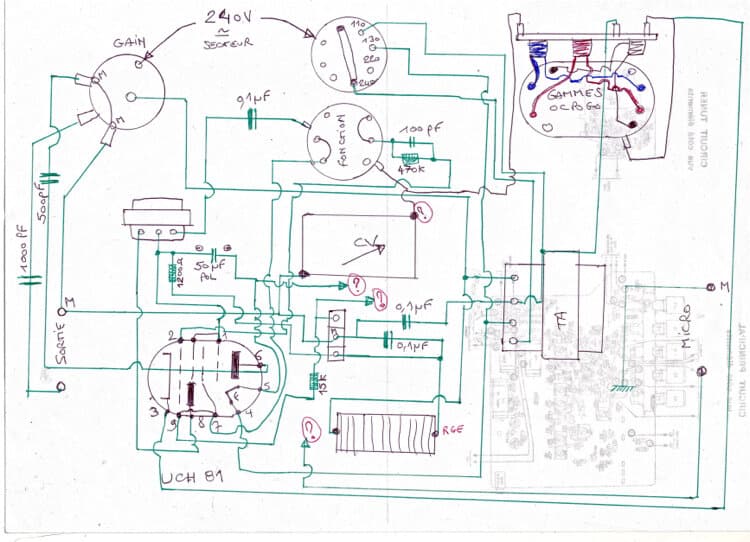 240V
~
SECTEUR
GAIN
110
130
220
240
M
M
0,1µF
FONCTION
100 PF
470K
GAMMES
OC PO GO
CIRCUIT TUNER
500PF
1000 PF
?
CV
1200Ω
50µF
POL
?
?
0,1µF
0,1µF
TA
M
MICRO
M
SORTIE
2
1
6
5
F
3
9
8
7
4
15K
?
RGE
UCH 81